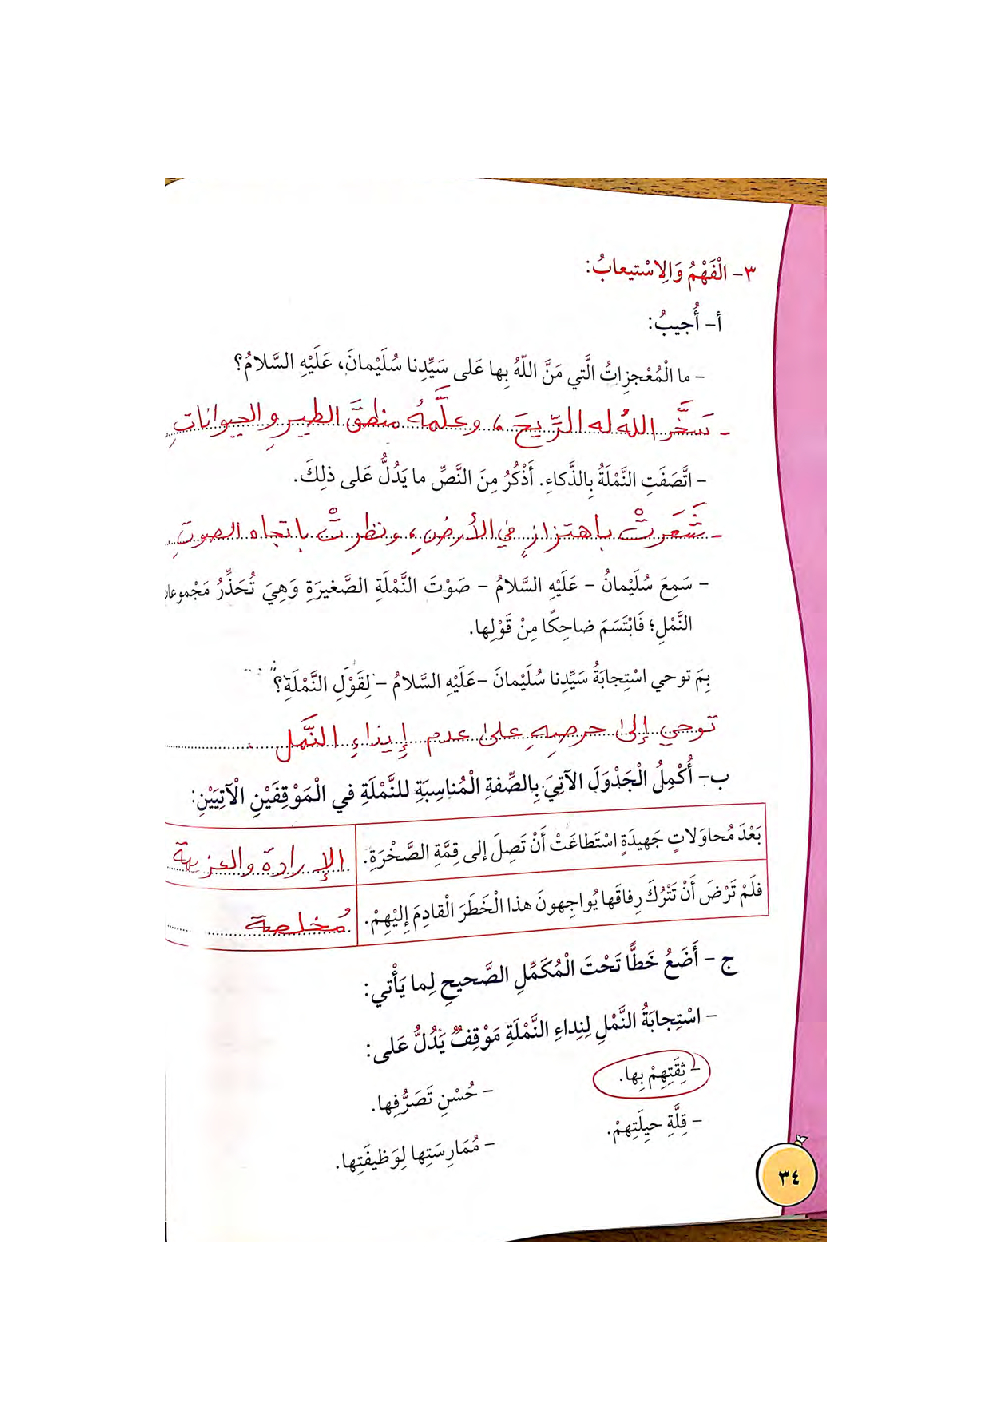 ٣- الْفَهْمُ وَالِاسْتيعابُ:
أ- أُجيبُ:
- ما الْمُعْجِزاتُ الَّتي مَنَّ اللّٰهُ بِها عَلى سَيِّدِنا سُلَيْمانَ، عَلَيْهِ السَّلامُ؟
- سَخَّر اللهُ له الرِّيحَ ، وعلَّمهُ منطقَ الطيرِ والحيواناتِ
- اتَّصَفَتِ النَّمْلَةُ بِالذَّكاءِ. أَذْكُرُ مِنَ النَّصِّ ما يَدُلُّ عَلى ذلِكَ.
- شَعَرتْ باهتزازٍ في الأرضِ، ونظرتْ باتجاه الصوتِ
- سَمِعَ سُلَيْمانُ - عَلَيْهِ السَّلامُ - صَوْتَ النَّمْلَةِ الصَّغيرَةِ وَهِيَ تُحَذِّرُ
النَّمْلِ؛ فَابْتَسَمَ ضاحِكًا مِنْ قَوْلِها.
بِمَ توحي اسْتِجابَةُ سَيِّدِنا سُلَيْمانَ -عَلَيْهِ السَّلامُ - لِقَوْلِ النَّمْلَةِ؟
توحي إلى حرصِهِ على عدم إيذاءِ النَّمل
ب- أُكْمِلُ الْجَدْوَلَ الْآتِيَ بِالصِّفَةِ الْمُناسِبَةِ لِلنَّمْلَةِ في الْمَوْقِفَيْنِ الْآتِيَيْنِ:
بَعْدَ مُحاوَلاتٍ جَهيدَةٍ اسْتَطاعَتْ أَنْ تَصِلَ إِلى قِمَّةِ الصَّخْرَةِ. الإرادة والعزيمة
فَلَمْ تَرْضَ أَنْ تَتْرُكَ رِفاقَها يُواجِهونَ هذا الْخَطَرَ الْقادِمَ إِلَيْهِمْ. مُخلصة
ج - أَضَعُ خَطًّا تَحْتَ الْمُكَمِّلِ الصَّحيحِ لِما يَأْتي:
- اسْتِجابَةُ النَّمْلِ لِنِداءِ النَّمْلَةِ مَوْقِفٌ يَدُلُّ عَلى:
- ثِقَتِهِمْ بِها.
- حُسْنِ تَصَرُّفِها.
- قِلَّةِ حيلَتِهِمْ.
- مُمَارِسَتِها لِوَظيفَتِها.
٣٤